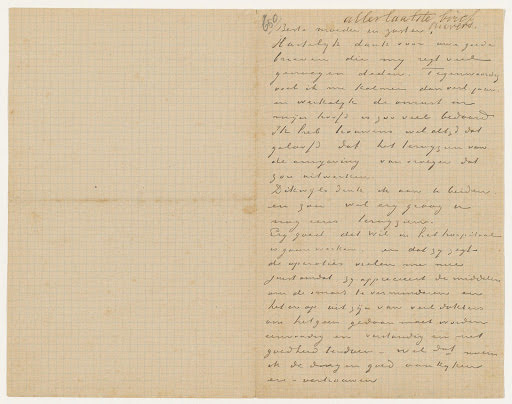 allerlaatste brief
Beste moeder en zuster,
Hartelijk dank voor uwe goede
brieven die mij regt veel
genoegen deden. Tegenwoordig
voel ik me kalmer dan verl. jaar
en werkelijk de onrust in
mijn hoofd is zoo veel bedaard
Ik heb trouwens wel altijd dat
geloofd dat het terugzien van
de omgeving van vroeger dat
zou uitwerken.
Dikwijls denk ik aan U beiden
en zou wel erg graag U
nog eens terugzien.
Erg goed dat Wil in het hospitaal
is gaan werken en dat zij zegt
de operaties vielen me mee
juist omdat zij apprecieert de middelen
om de smart te verminderen en
het er op uit zijn van veel dokters
om hetgeen gedaan moet worden
eenvoudig en verstandig en met
goedheid te doen – wel dat noem
ik de dingen goed aankijken
en – vertrouwen